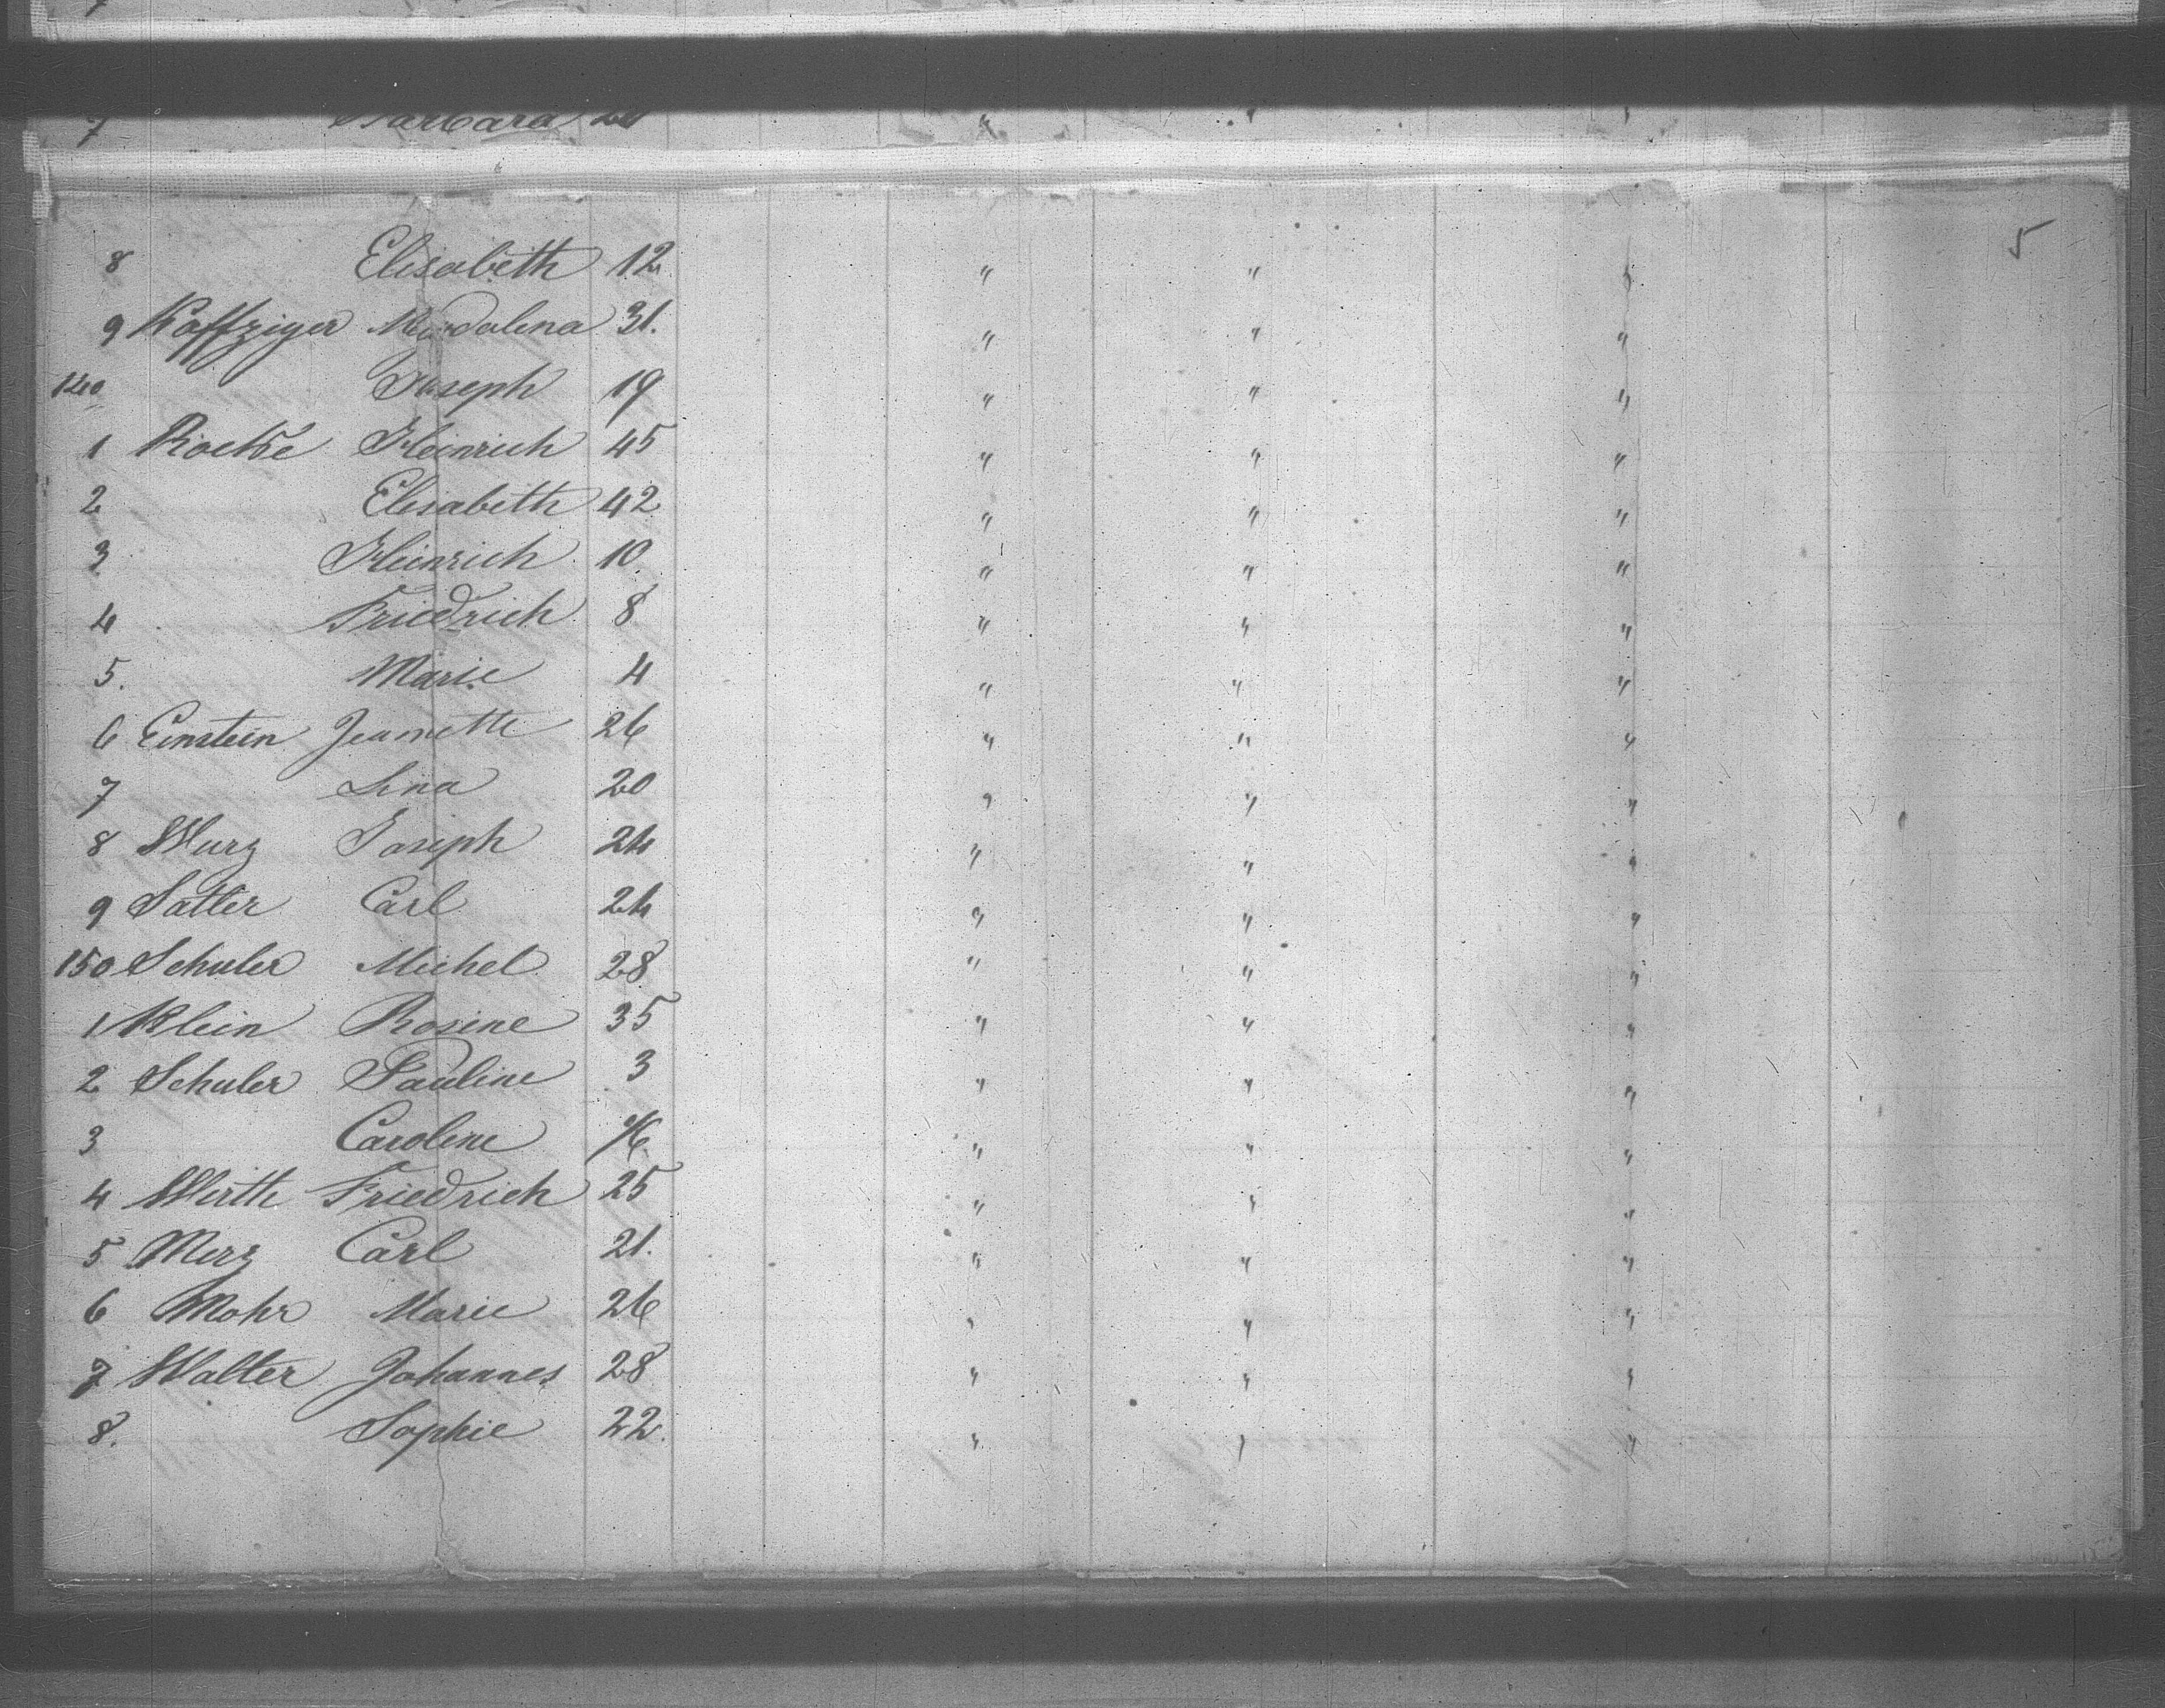 7 Barbara 20 "
5
8 Elisabeth 12 " " "
9 Koffziger Magdalina 31. " " "
140 Joseph 19 " " "
1 Heinrich 45 " " "
2 Elisabeth 42 " " "
3 Heinrich 10 " " "
4 Friedrich 8 " " "
5. Marie 4 " " "
6 Einstein Jeanette 26 " " "
7 Lina 20 " " "
8 Wurz Joseph 24 " " "
9 Satler Carl 24 " " "
150 Schuler Michel 28 " " "
1 Klein Rosine 35 " " "
2 Schuler Pauline 3 " " "
3 Caroline " " "
4 Wirth Friedrich 25 " " "
5 Merz Carl 21. " " "
6 Mohr Marie 26 " " "
7 Walter Johannes 28 " " "
8. Sophie 22. " " "